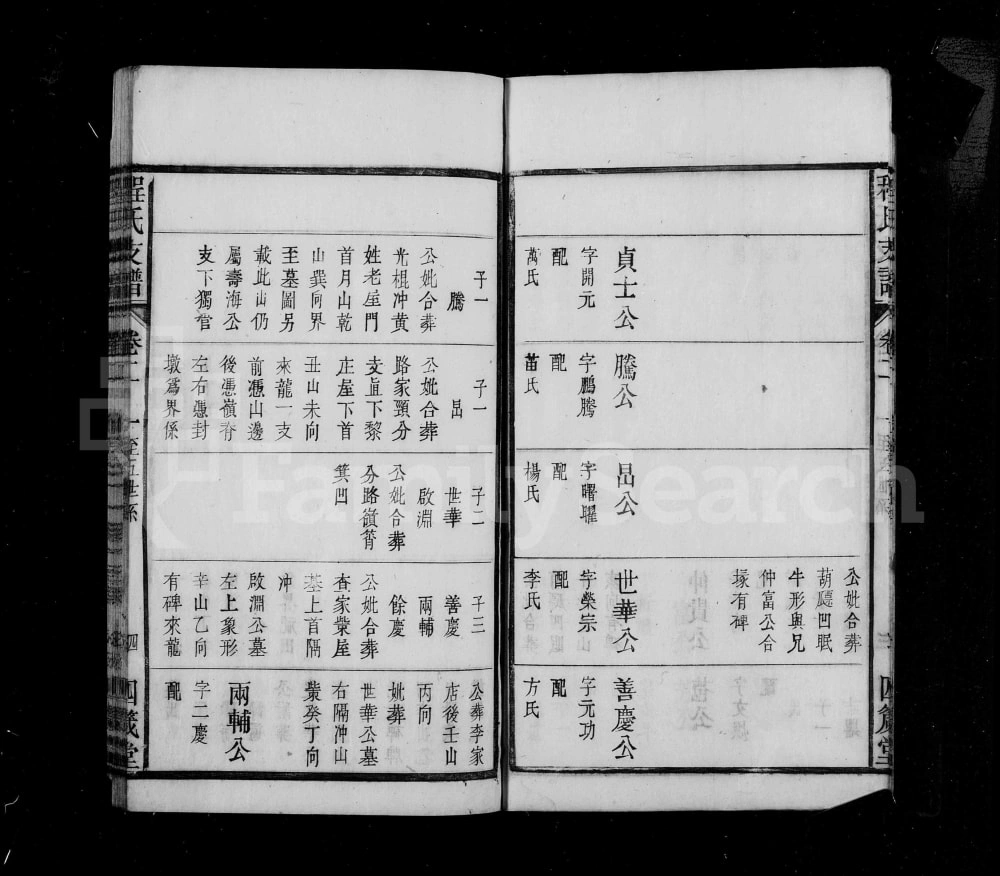 程氏支譜
卷二
四箴堂
貞士公
字開元
配
萬氏
騰公
字鵬騰
配
苗氏
昌公
字曙曜
配
楊氏
公妣合葬
葫蘆凹眠
牛形與兄
仲富公合
塚有碑
世華公
字榮宗
配
李氏
善慶公
字元功
配
方氏
子一
騰
公妣合葬
光棍冲黄
姓老屋門
首月山乾
山巽向界
至墓圖另
載此山仍
屬壽海公
支下獨管
子一
昌
公妣合葬
路家頸分
支直下黎
庄屋下首
丑山未向
來龍一支
前憑山邊
後憑嶺脊
左右憑封
墩爲界係
子二
世華
啟淵
公妣合葬
分路嶺筲
箕凹
子三
善慶
兩輔
餘慶
公妣合葬
查家業屋
塟上首隔
冲
啟淵公墓
左上象形
辛山乙向
有碑來龍
公葬李家
店後壬山
丙向
妣葬
世華公墓
右隔冲山
業癸丁向
兩輔公
字二慶
配
程氏支譜
卷二
一至五世系
四
四箴堂
FamilySearch